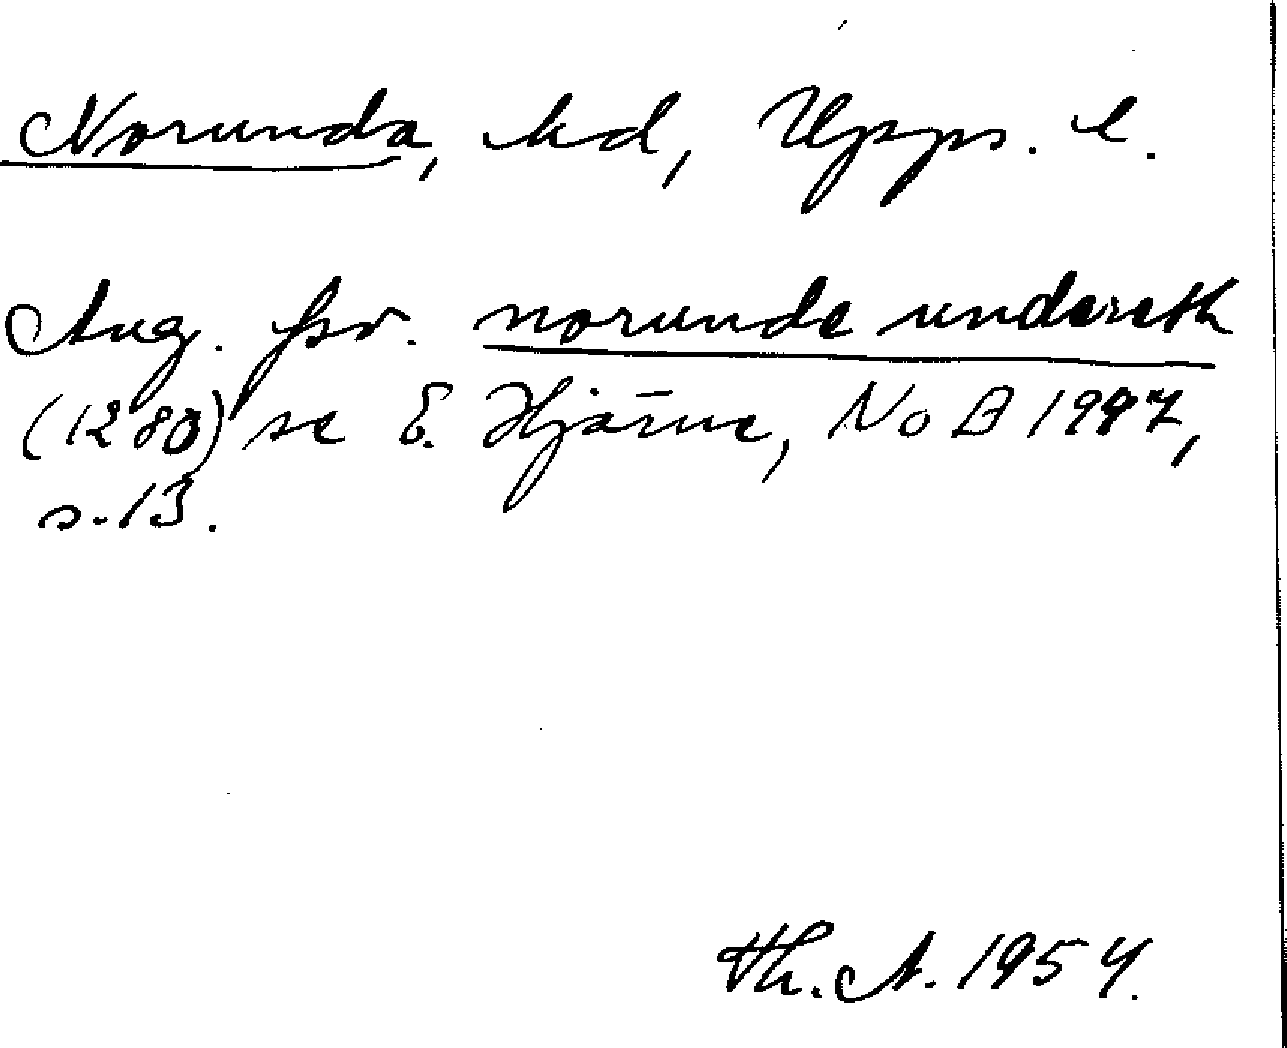 Norunda, hd, Upps. l.
Ang. fsv. norunde undereth
(1280) se E. Hjärne, NoB 1947,
s. 13.
Th. A. 1954.